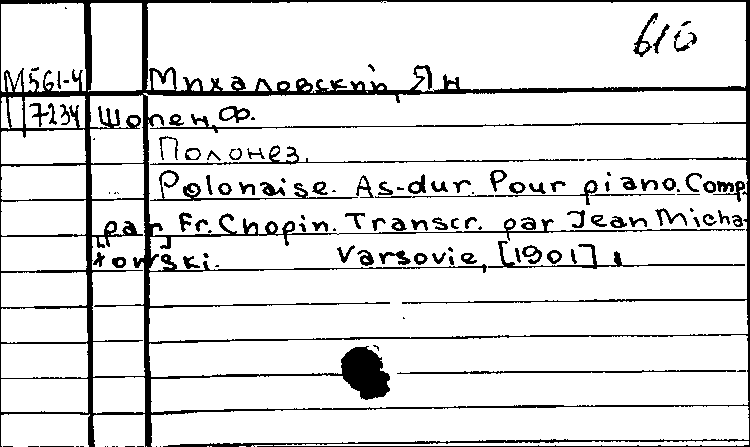 610
М561-4 Михаловский, Ян
7234 Шопен, Ф.
Полонез.
Polonaise. As-dur. Pour piano. Comp.
par Fr. Chopin. Transcr. par Jean Micha-
łowski. Varsovie, [1901].